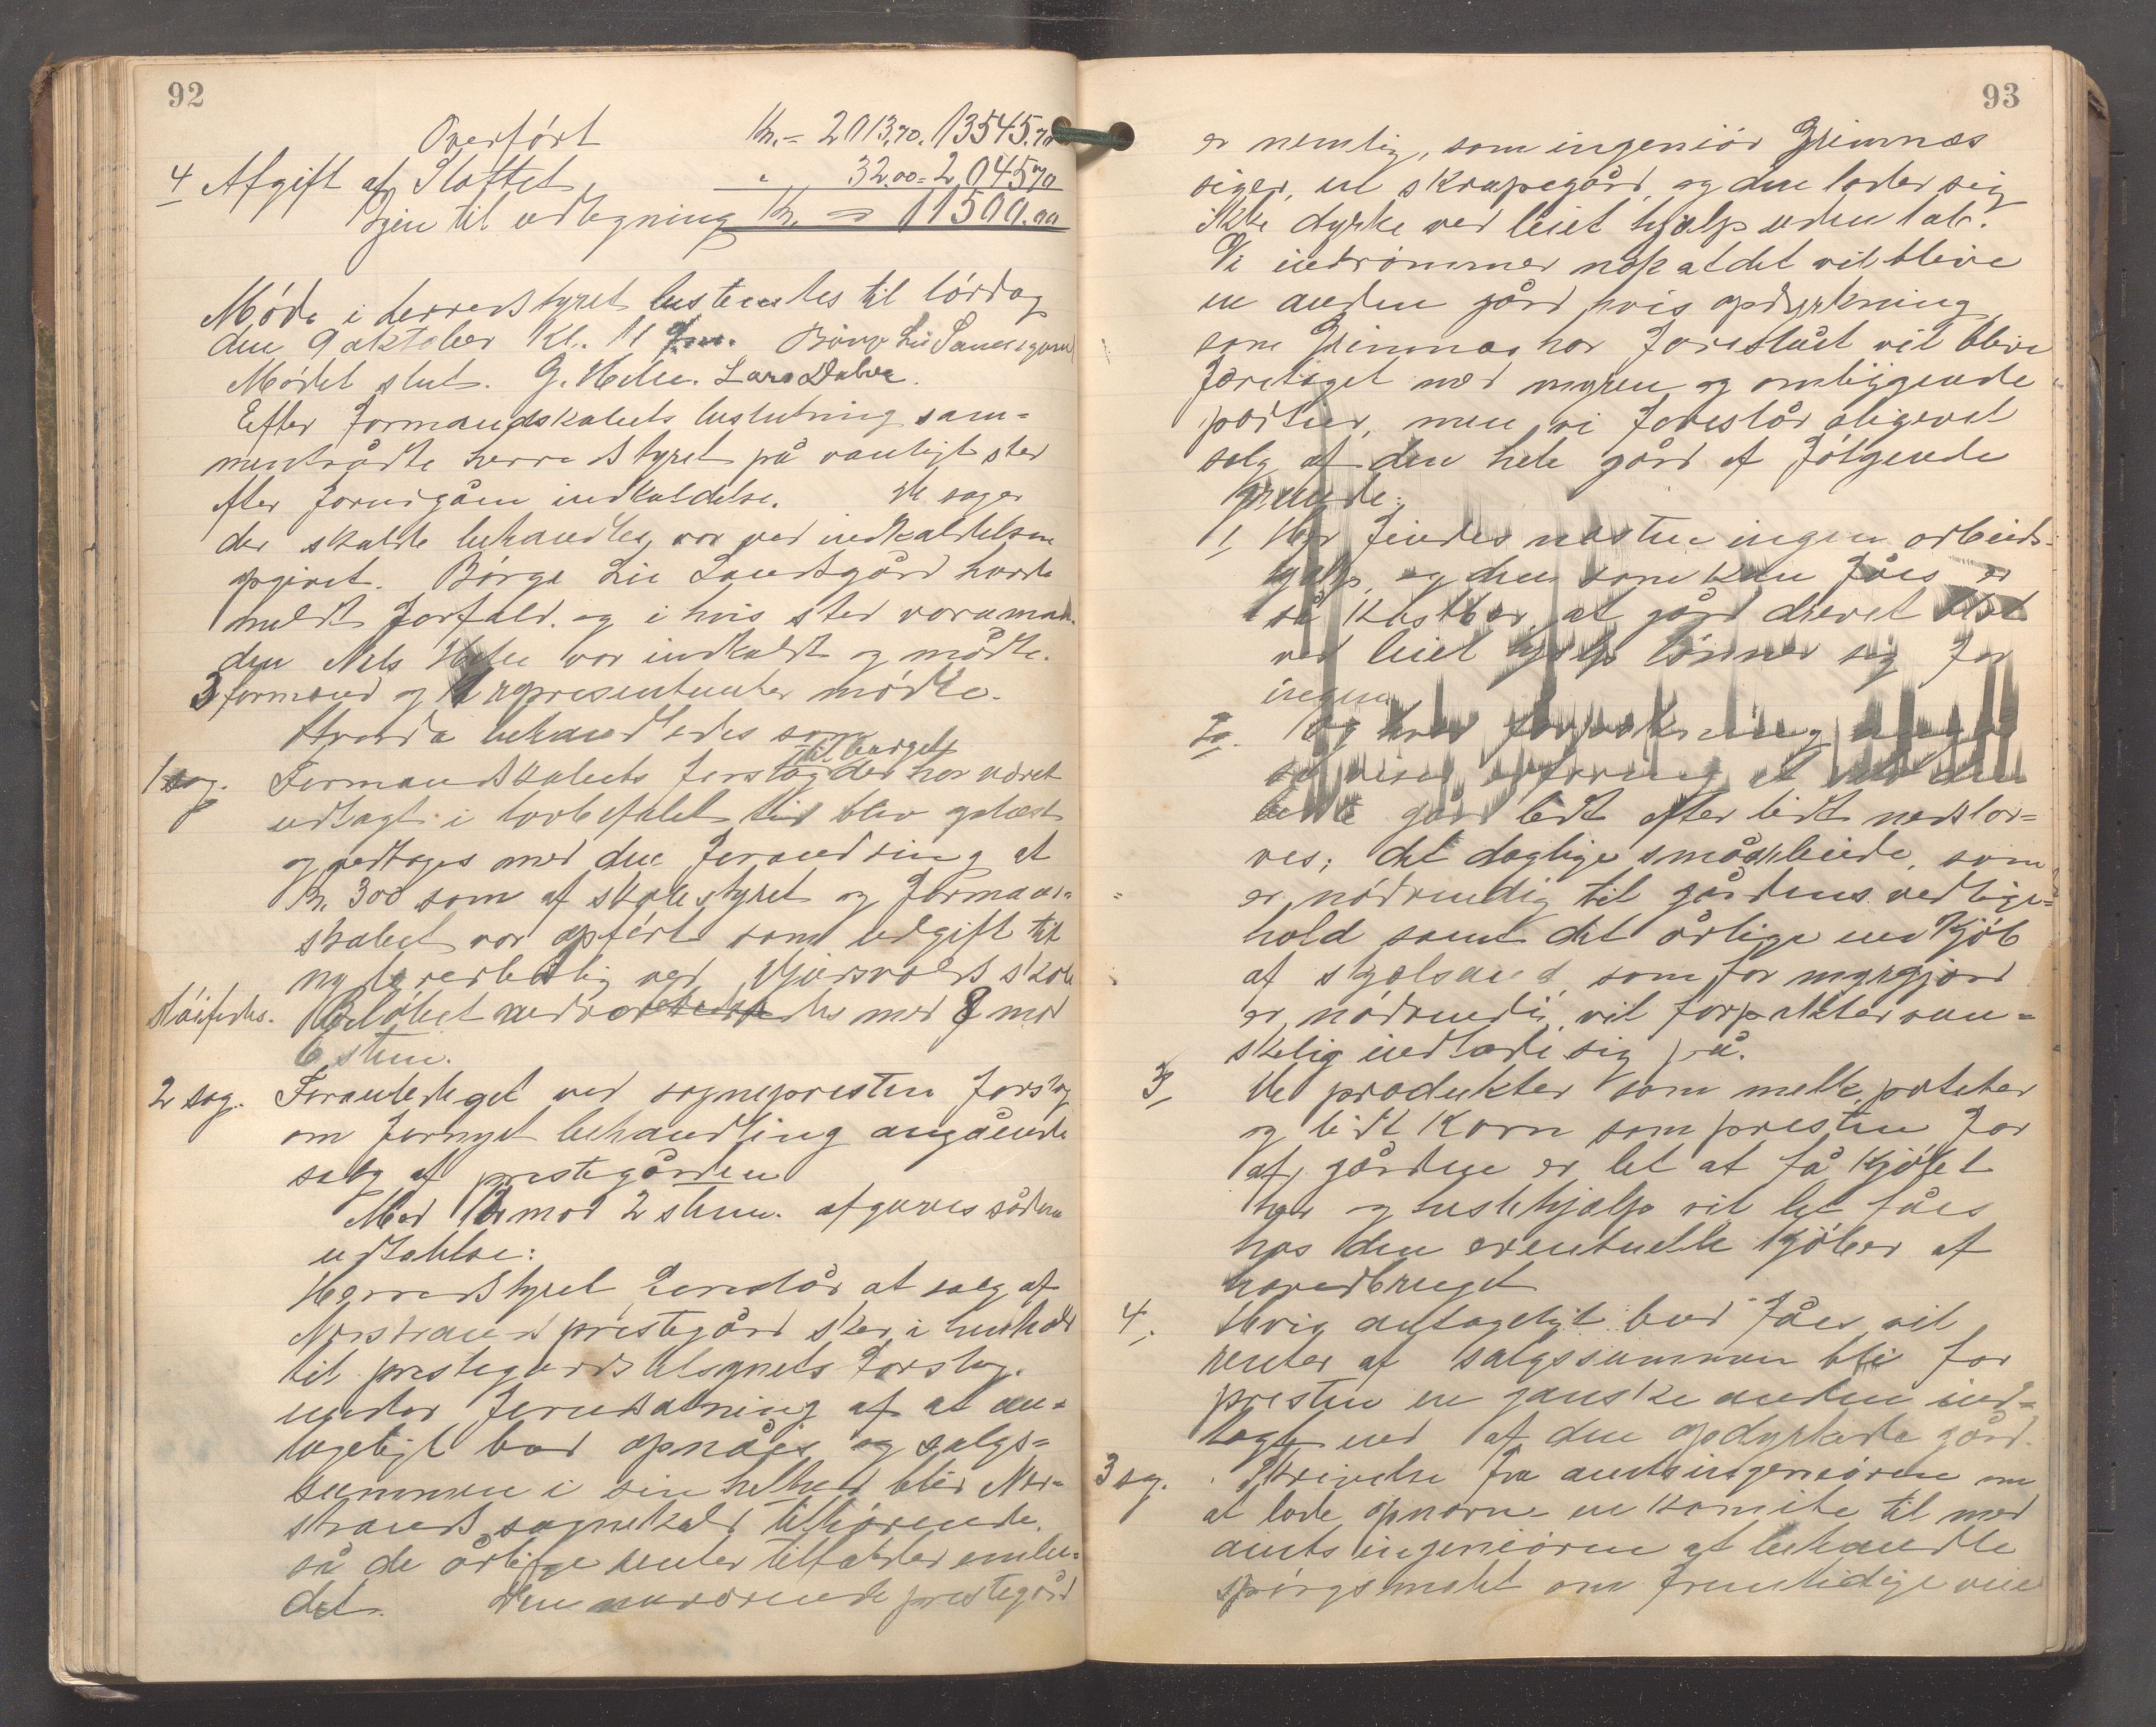 92
Overført Kr. = 2013,70. 13545.70
4 Afgift af Sloftet " 32.00 = 2,045.70
Igjen til udlegning Kr. = 11500.00
Møde i herredstyret bestemtes til lørdag
den 9 oktober Kl. 11 fm. Børge Lie Sandsgård
Mødet slut. G. Helle. Lars Dalva
Efter formandskabets beslutning sam=
mentrådte herredstyret på vanligt sted
efter forudgåen indkaldelse. De sager
der skulde behandles, var ved indkaldelsen
opgivet. Børge Lie Sandsgård havde
meldt forfald. og i hvis sted varaman=
den Nels Helle var indkaldt og mødte.
3 formænd og representanter mødte.
Hvorda behandledes som
1 sag. Formandskabets forslag til budget der har været
udlagt i lovbefalet tid blev oplæst
og vedtoges med den forandring at
Kr. 300 som af skolestyret og forman=
skabet var opført som udgift til
ny lærerbolig ved Gjersvolds skole
Sløifedes. Beløbet nedvoteredes med 8 mod
6 stem.
2 sag. Foranlediget ved sognepresten forslag
om fornyet behandling angående
salg af prestegården
Med 12 mod 2 stem. afgaves sådan
udtalelse:
Herredstyret foreslår at salg af
Nerstrand prestegård sker i henhold
til prestegårdstilsynets forslag.
under forudsætning af at an=
tageligt bud opnåes og salgs=
summen i sin helhed blir Ner=
strands sognekald tilhørende.
så de årlige renter tilfalder embe=
det. Den nuværende prestegård
93
er nemlig, som ingeniør Grimnæs
siger, en skrapegård, og den lader sig
ikke dyrke ved leiet hjælp uden tab.
Vi indrømmer nok at det vil blive
en anden gård, hvis opdyrkning
som Grimnæs har foreslået vil blive
foretaget med myren og omliggende
partier, men vi foreslår aligevel
salg af den hele gård af følgende
grunde:
1 Her findes næsten ingen arbeids=
hjælp, og den som kan fåes er
så kostbar, at gård drevet
ved leiet hjælp lønner sig for
ingen.
2. Og hvad forpaktning angår
så viser erfaring at ved den
gård lidt efter lidt nedslar=
ves; det daglige småarbeide, som
er nødvendig til gårdens vedlige=
hold samt det årlige indkjøb
af skjælsand, som for myrgjord
er nødvendi, vil forpakter van=
skelig indlade sig på.
3 De produkter som melk, poteter
og lidt korn som presten før
af gården er let at få kjøbt
her og hestehjælp vil let fåes
hos den eventuelle kjøber af
hovedbruget
4. Hvis antageligt bud fåes vil
renter af salgssummen bli for
presten en ganske anden ind=
tægt end af den opdyrkede gård.
3 sag. Skrivelse fra amtsingeniøren om
at lade opnævne en komite til med
amtsingeniøren at behandle
spørgsmålet om fremtidige veie